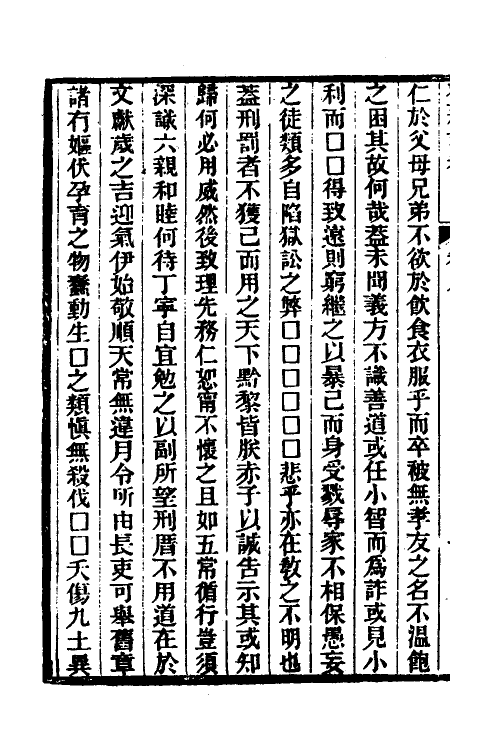 仁於父母兄弟不欲於飲食衣服乎而卒被無孝友之名不溫飽
之困其故何哉葢未聞義方不識善道或任小智而為詐或見小
利而□□得致遠則窮繼之以暴己而身受戮辱家不相保愚妄
之徒類多自陷獄訟之弊□□□□□□悲乎亦在教之不明也
葢刑罰者不獲已而用之天下黔黎皆朕赤子以誠告示其或知
歸何必用威然後致理先務仁恕甯不懷之且如五常循行豈須
深識六親和睦何待丁寧自宜勉之以副所望刑厝不用道在於
文獻歲之吉迎氣伊始敬順天常無違月令所由長吏可舉舊章
諸有嫗伏孕育之物蠢動生□之類愼無殺伐□□夭傷九土異